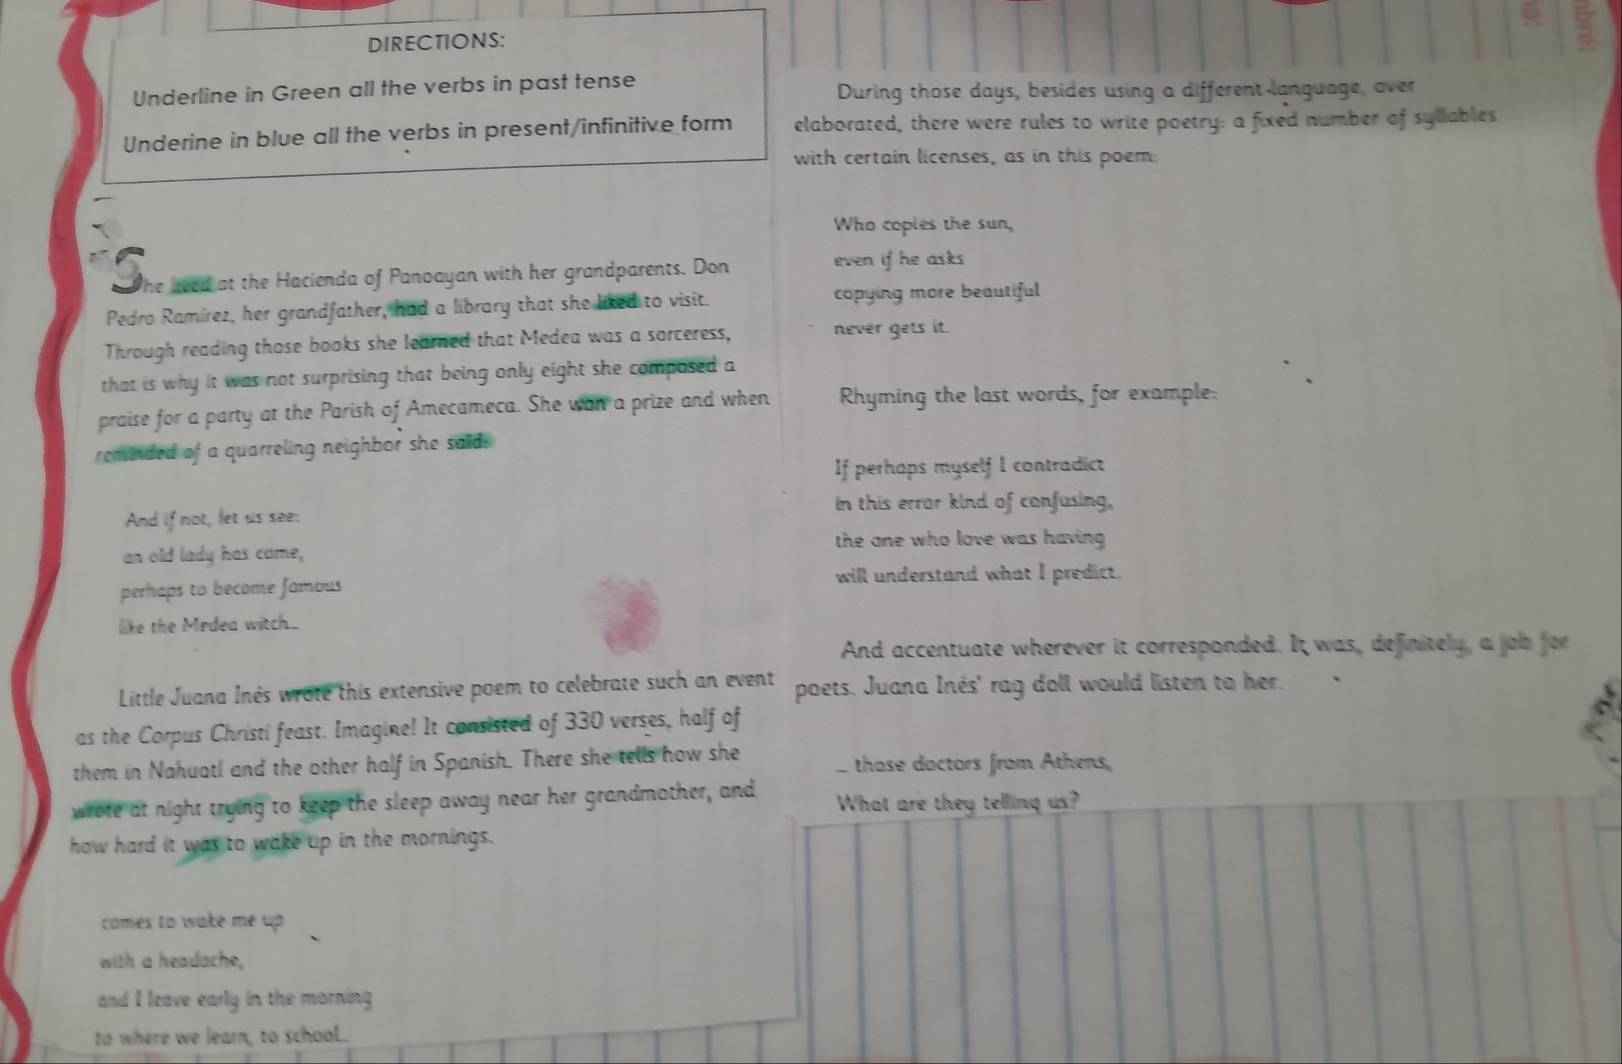 DIRECTIONS:
Underline in Green all the verbs in past tense
Underine in blue all the verbs in present/infinitive form
She lived at the Hacienda of Panoayan with her grandparents. Don
Pedro Ramírez, her grandfather, had a library that she liked to visit.
Through reading those books she learned that Medea was a sorceress,
that is why it was not surprising that being only eight she composed a
praise for a party at the Parish of Amecameca. She won a prize and when
reminded of a quarreling neighbor she said:
And if not, let us see:
an old lady has come,
perhaps to become famous
like the Medea witch...
Little Juana Inés wrote this extensive poem to celebrate such an event
as the Corpus Christi feast. Imagine! It consisted of 330 verses, half of
them in Nahuatl and the other half in Spanish. There she tells how she
wrote at night trying to keep the sleep away near her grandmother, and
how hard it was to wake up in the mornings.
comes to wake me up
with a headache,
and I leave early in the morning
to where we learn, to school...
During those days, besides using a different language, over
elaborated, there were rules to write poetry: a fixed number of syllables
with certain licenses, as in this poem:
Who copies the sun,
even if he asks
copying more beautiful
never gets it.
Rhyming the last words, for example:
If perhaps myself I contradict
in this error kind of confusing,
the one who love was having
will understand what I predict.
And accentuate wherever it corresponded. It was, definitely, a job for
poets. Juana Inés' rag doll would listen to her.
... those doctors from Athens,
What are they telling us?